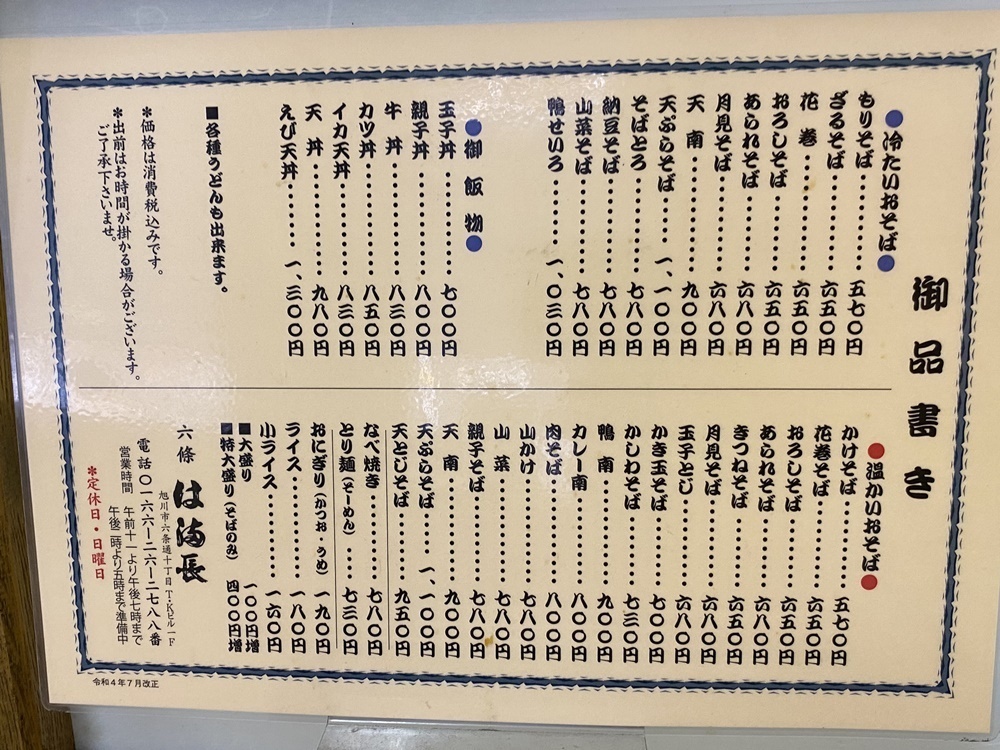 御品書き
●冷たいおそば●
もりそば……………五七〇円
ざるそば……………六五〇円
花巻……………六五〇円
おろしそば……………六五〇円
あられそば……………六八〇円
月見そば……………六八〇円
天南……………九〇〇円
天ぷらそば……一、一〇〇円
そばとろ……………七八〇円
納豆そば……………七八〇円
山菜そば……………七八〇円
鴨せいろ……一、〇三〇円
●御飯物●
玉子丼……………七〇〇円
親子丼……………八〇〇円
牛丼……………八三〇円
カツ丼……………八五〇円
イカ天丼……………八三〇円
天丼……………九八〇円
えび天丼……一、三〇〇円
■各種うどんも出来ます。
*価格は消費税込みです。
*出前はお時間が掛かる場合がございます。
ご了承下さいませ。
●温かいおそば●
かけそば……………五七〇円
花巻そば……………六五〇円
おろしそば……………六五〇円
あられそば……………六八〇円
きつねそば……………六五〇円
月見そば……………六八〇円
玉子とじ……………六八〇円
かき玉そば……………七〇〇円
かしわそば……………七三〇円
鴨南……………九〇〇円
カレー南……………八〇〇円
肉そば……………八〇〇円
山かけ……………七八〇円
山菜……………七八〇円
親子そば……………七八〇円
天南……………九〇〇円
天ぷらそば……一、一〇〇円
天とじそば……………九五〇円
なべ焼き……………七八〇円
とり麺(そーめん)……七三〇円
おにぎり(かつお・うめ)一九〇円
ライス……………一八〇円
小ライス……………一六〇円
■大盛り 一〇〇円増
■特大盛り(そばのみ) 四〇〇円増
六條 は満長
旭川市六条通十丁目T・Kビル一F
電話〇一六六ー二六ー二七八八番
営業時間 午前十一より午後七時まで
午後二時より五時まで準備中
*定休日・日曜日
令和4年7月改正